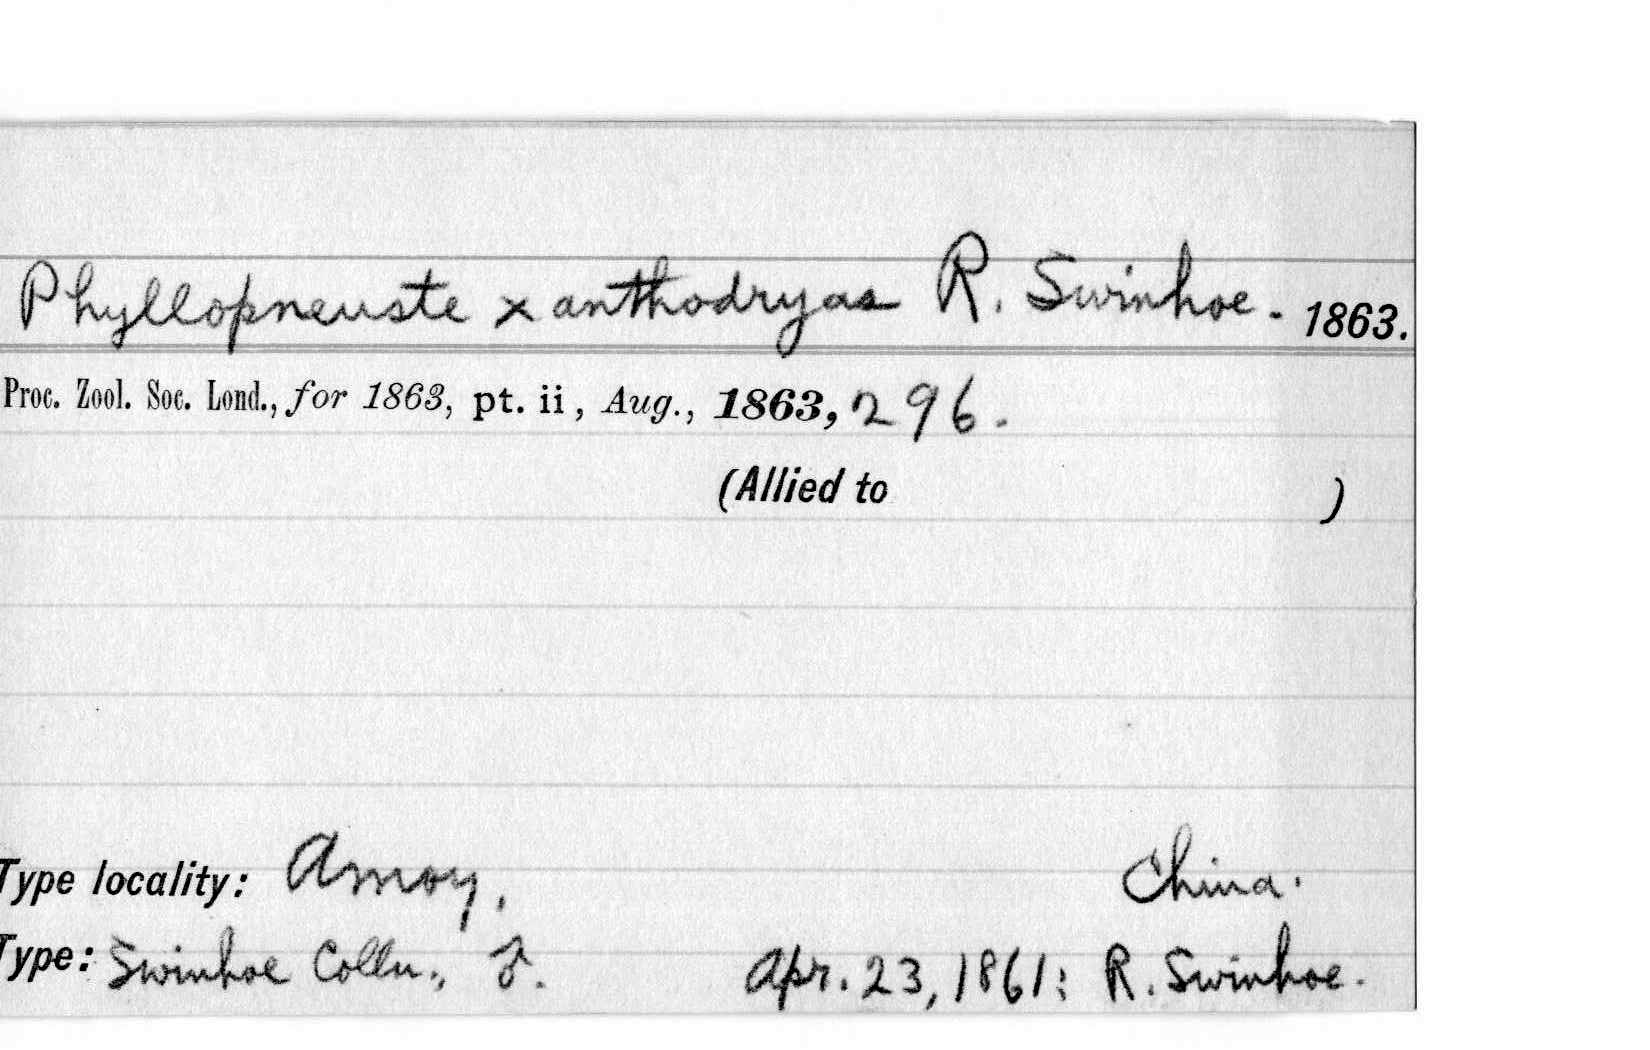 Phyllopneuste xanthodryas R. Swinhoe. 1863.
Proc. Zool. Soc. Lond., for 1863, pt. ii, Aug., 1863, 296.
(Allied to )
Type locality: Amoy, China.
Type: Swinhoe Colln., ♂. Apr. 23, 1861: R. Swinhoe.